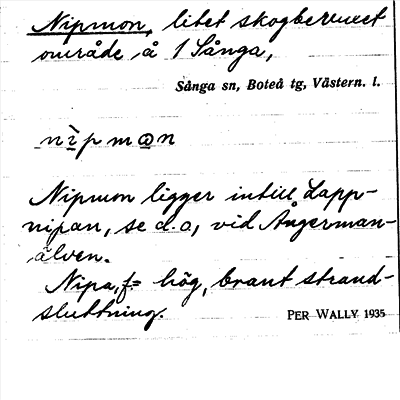 Nipmon, litet skogbevuxet
område å 1 Sånga,
Sånga sn, Boteå tg, Västern. l.
nìpmɷn
Nipmon ligger intill Lapp-
nipan, se d.o, vid Ångerman-
älven.
Nipa, f = hög, brant strand-
sluttning.
PER WALLY 1935